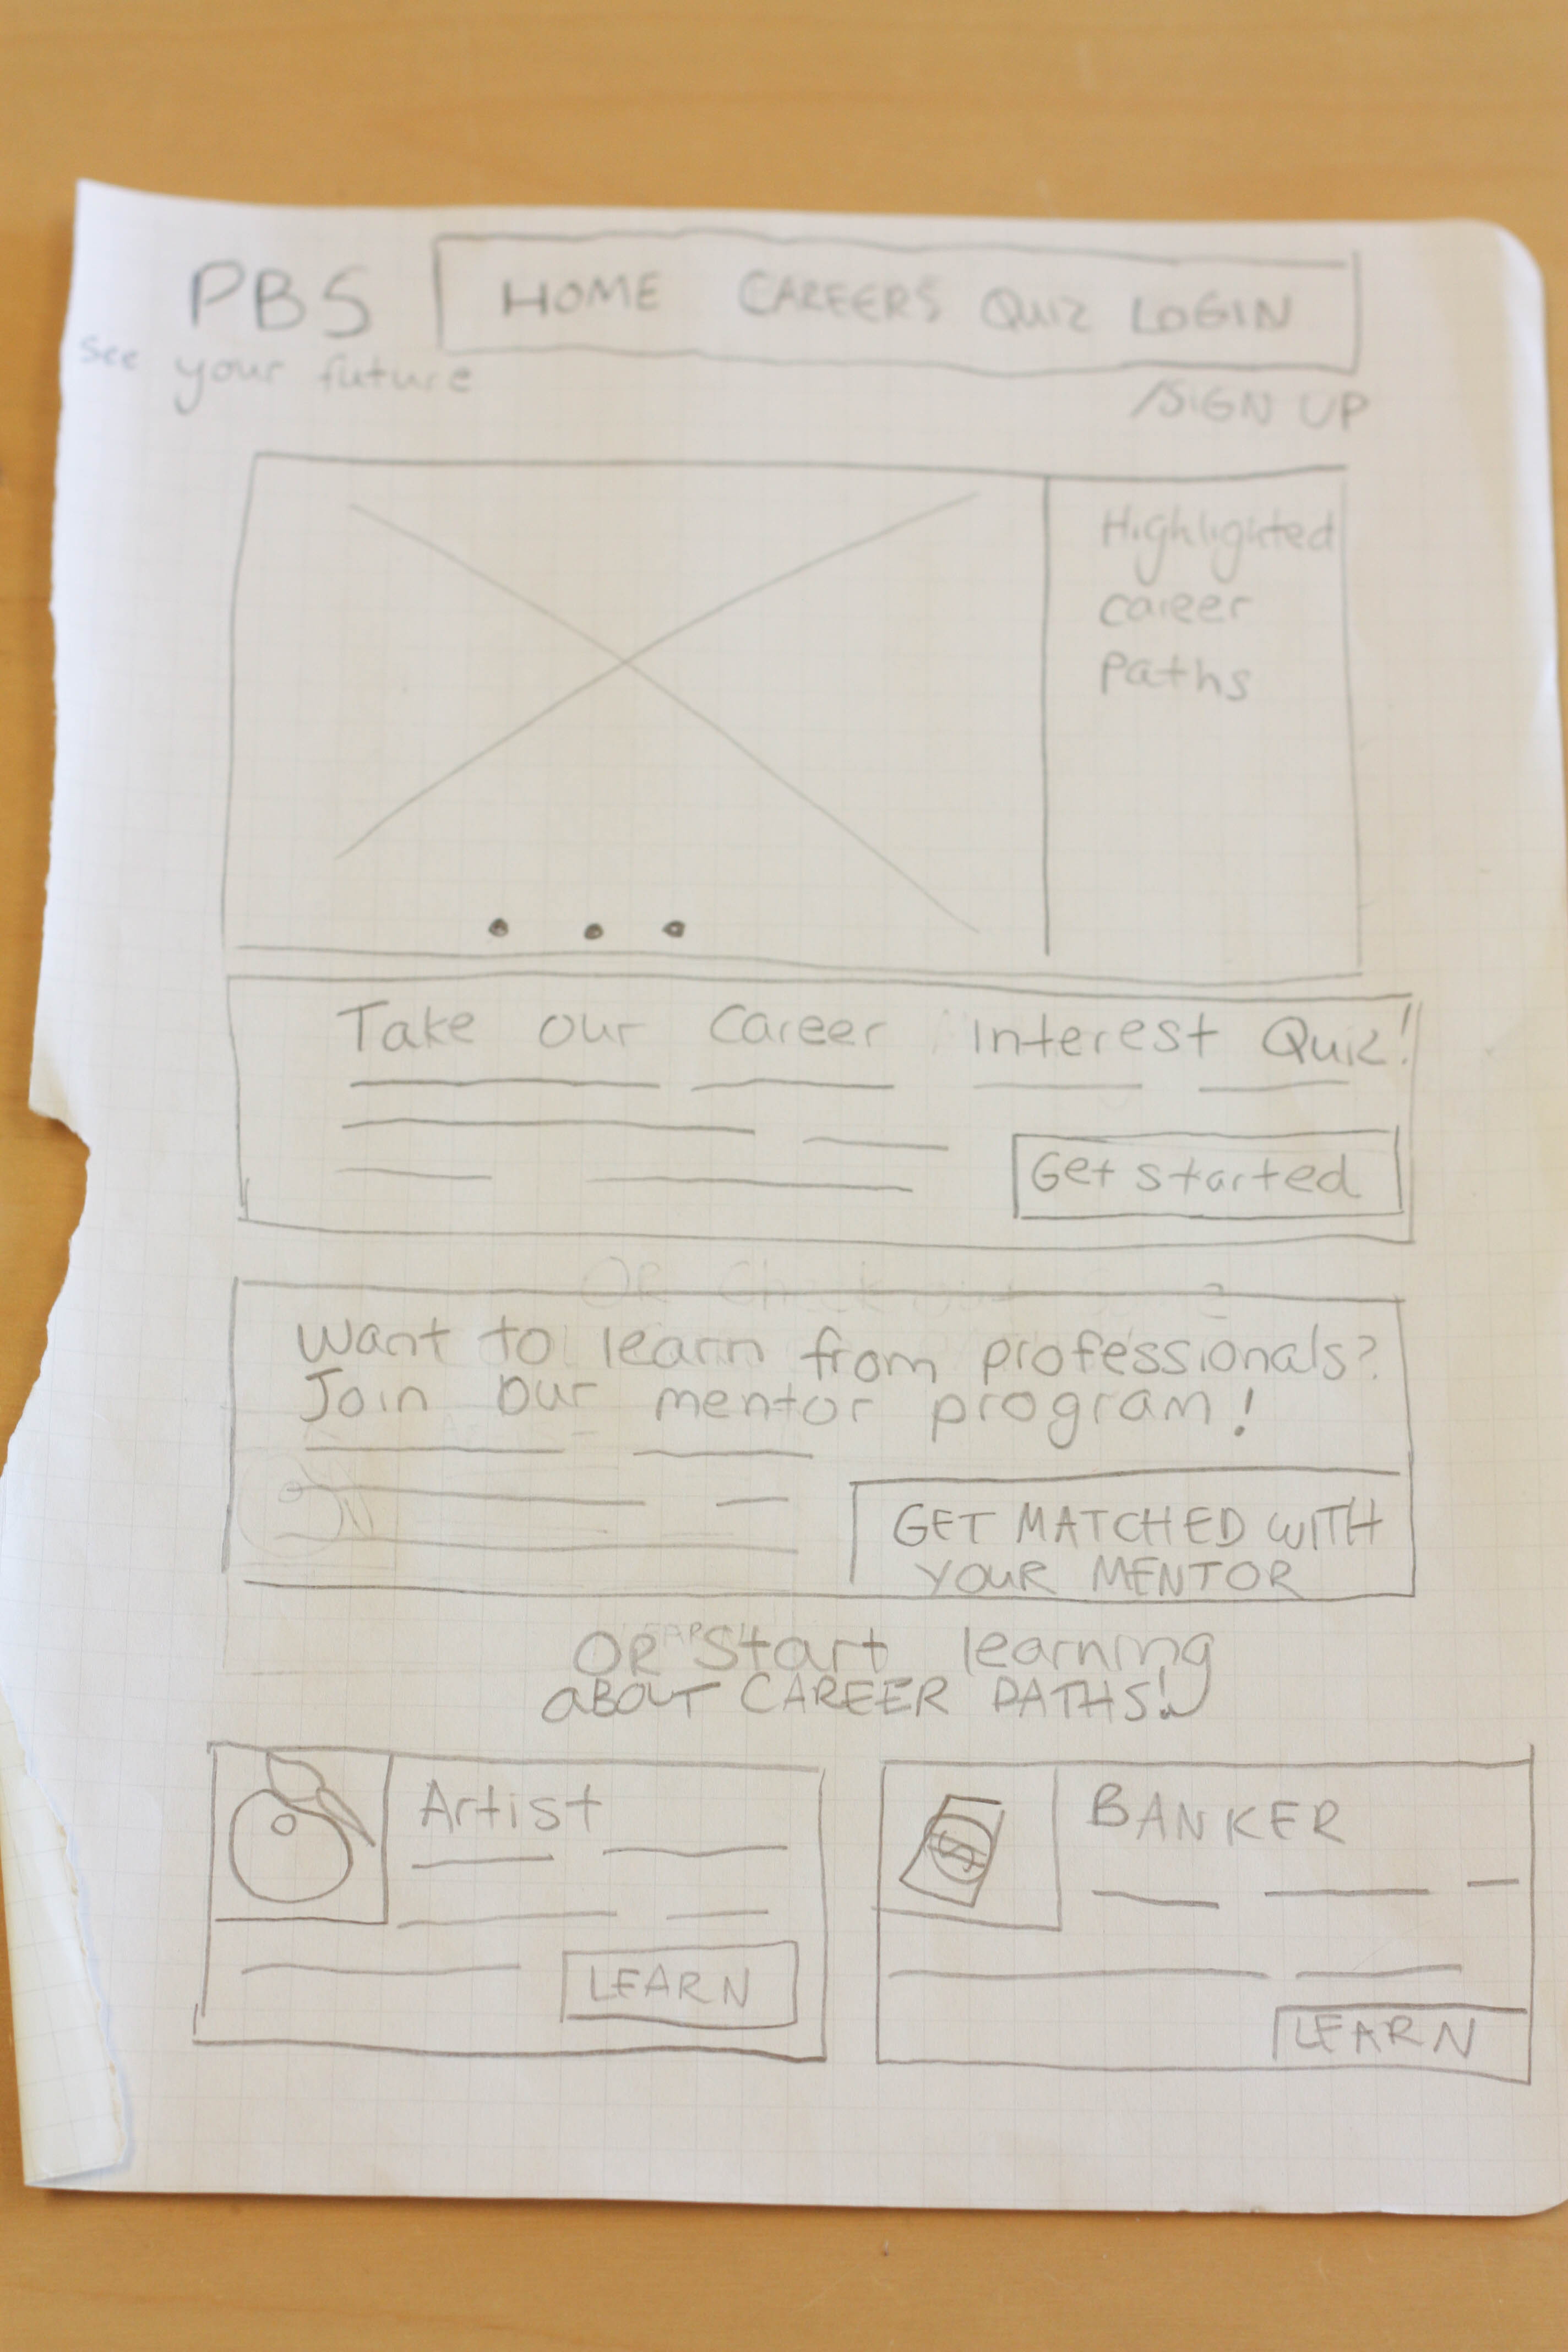 PBS
see your future
HOME CAREERS QUIZ LOGIN
/SIGN UP
Highlighted
career
paths
Take our Career Interest Quiz!
Get started
OR Check out
Want to learn from professionals?
Join our mentor program!
GET MATCHED WITH
YOUR MENTOR
OR Start learning
ABOUT CAREER PATHS!
Artist
LEARN
BANKER
LEARN